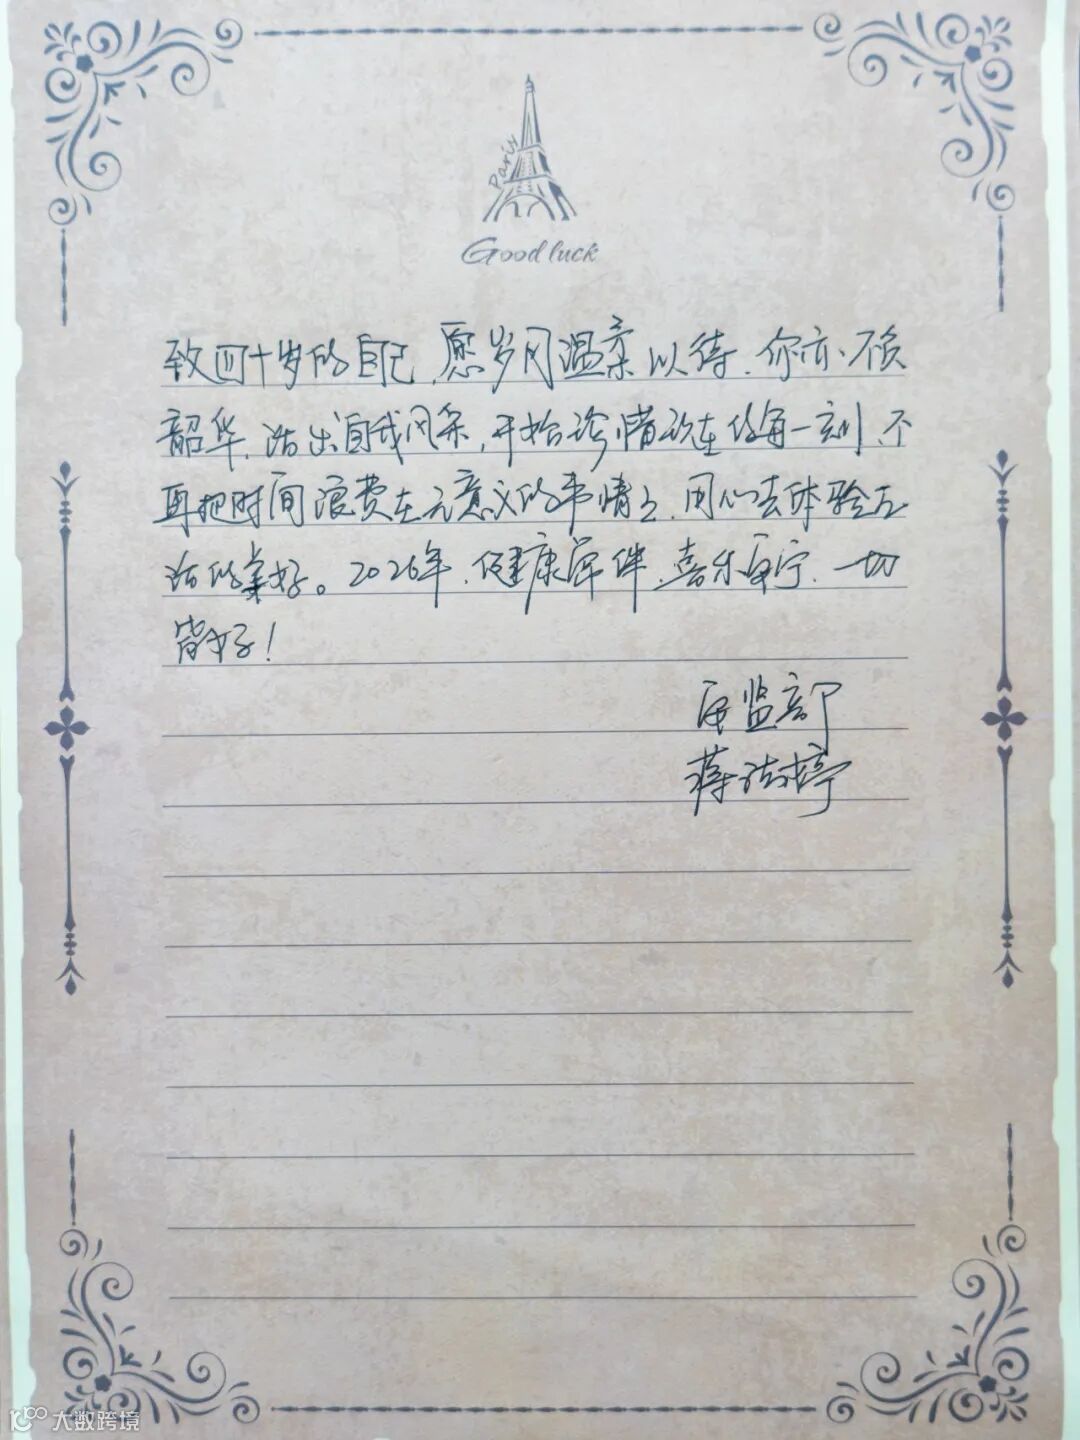 Paris
Good luck
致四十岁的自己，愿岁月温柔以待，你亦不负
韶华，活出自我风采，开始珍惜现在的每一刻，不
再把时间浪费在无意义的事情上，用心去体验生
活的美好。2026年，健康常伴，喜乐安宁，一切
皆好！
监部
蒋婷
大数跨境